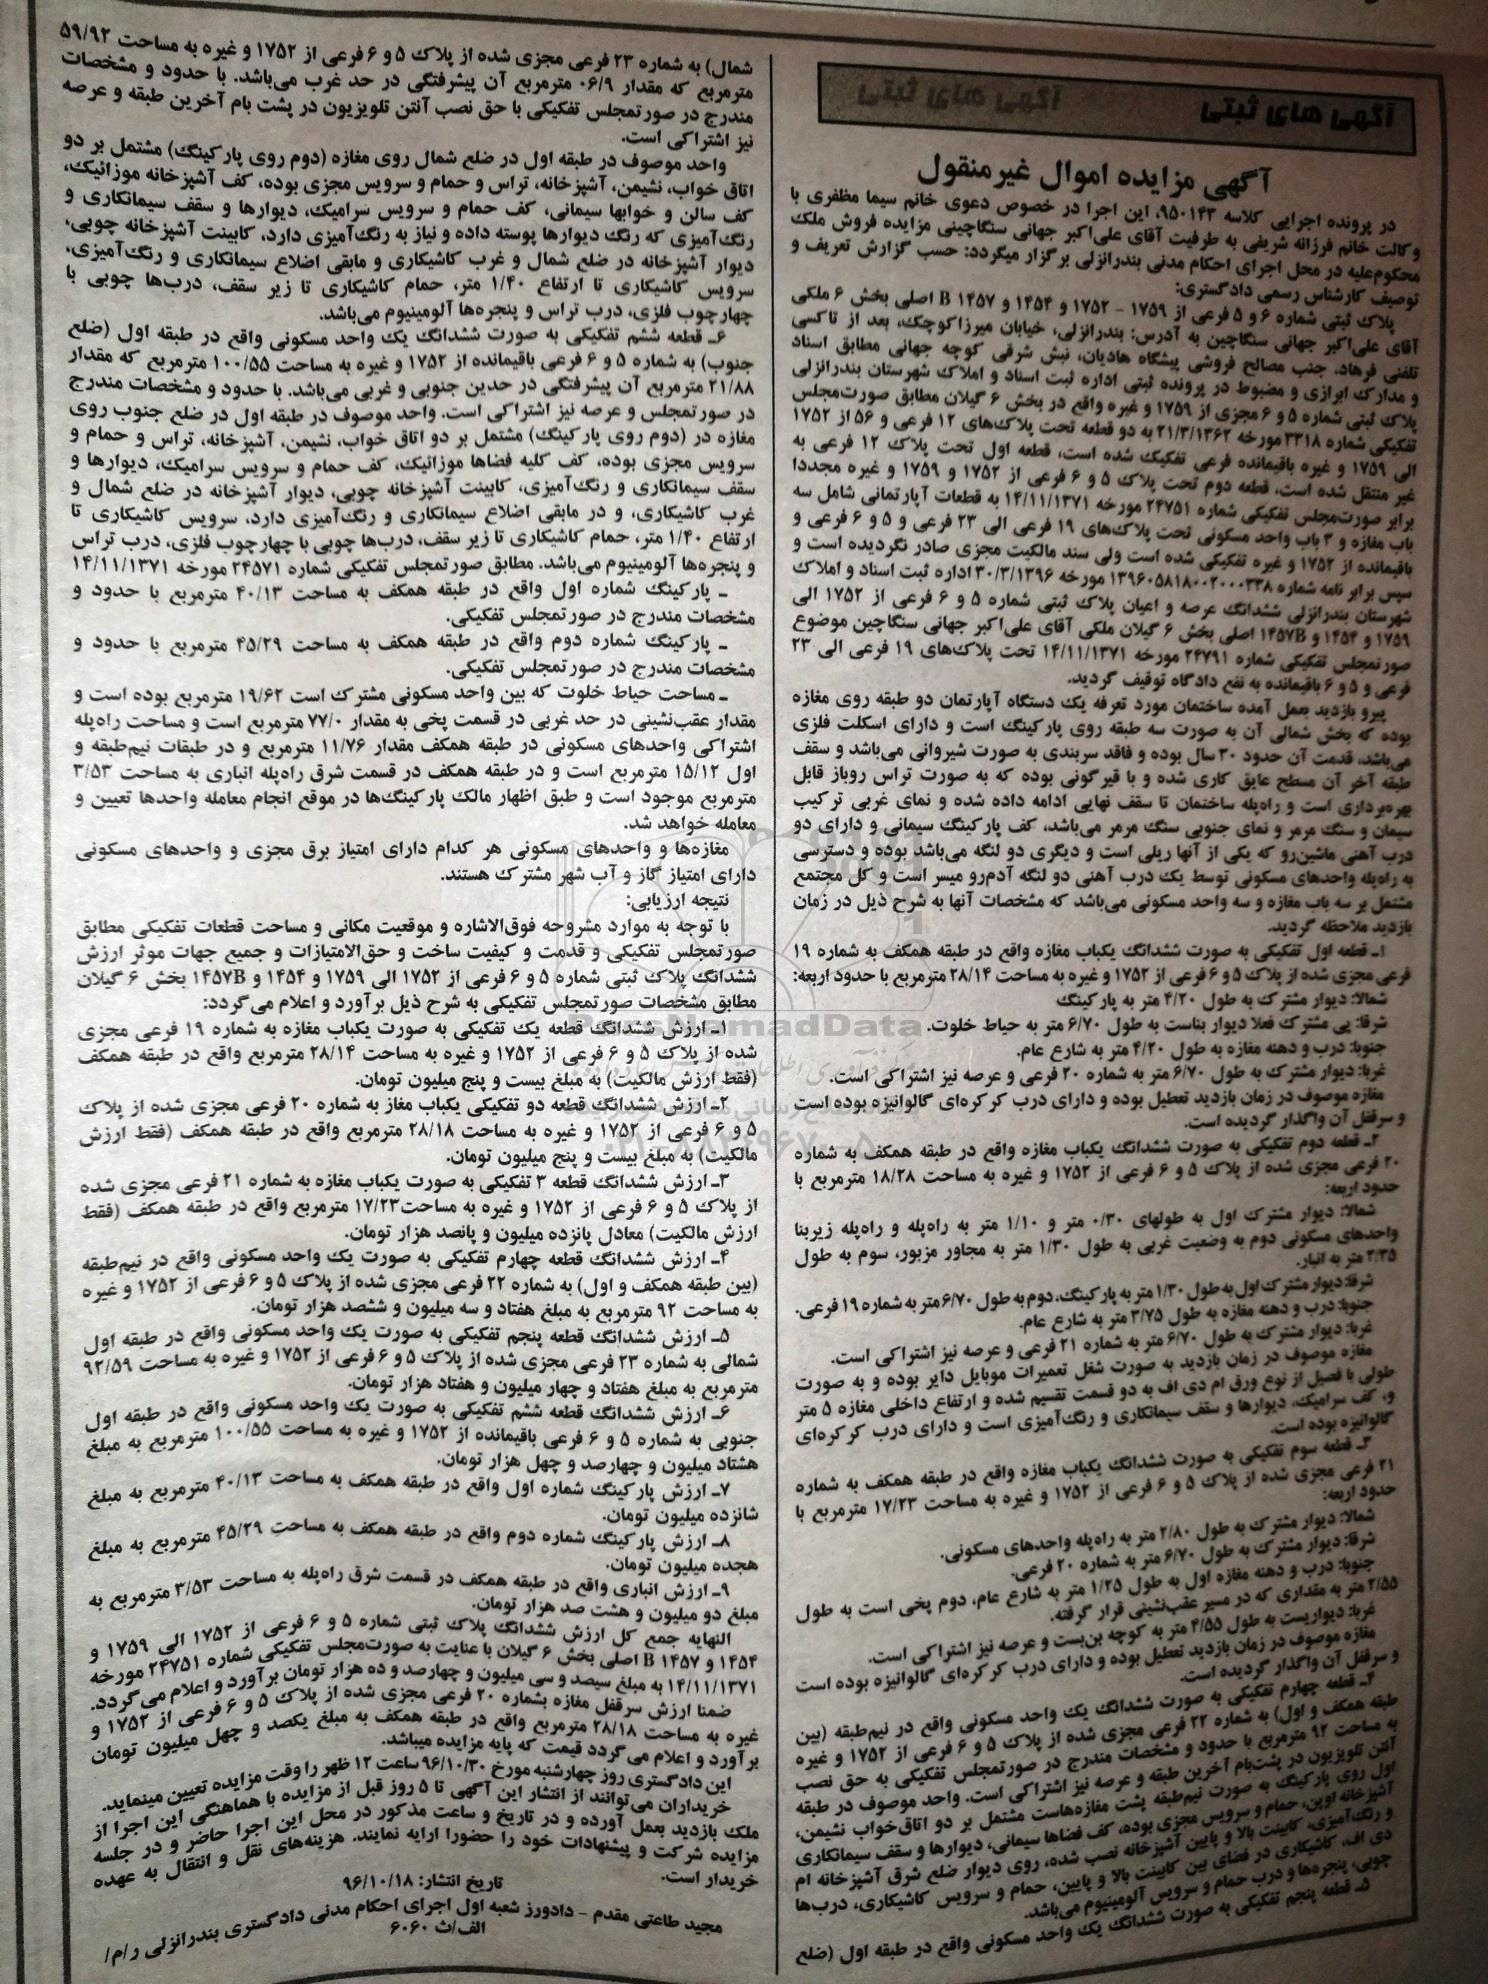 آگهی های ثبتی
آگهی مزایده اموال غیرمنقول
در پرونده اجرایی کلاسه ۹۵۰۱۴۳، این اجرا در خصوص دعوی خانم سیما مظفری با
وکالت خانم فرزانه شریفی به طرفیت آقای علی‌اکبر جهانی سنگاچینی مزایده فروش ملک
محکوم‌علیه در محل اجرای احکام مدنی بندرانزلی برگزار میگردد: حسب گزارش تعریف و
توصیف کارشناس رسمی دادگستری:
پلاک ثبتی شماره ۶ و ۵ فرعی از ۱۷۵۹ – ۱۷۵۲ و ۱۴۵۴ و ۱۴۵۷ B اصلی بخش ۶ ملکی
آقای علی‌اکبر جهانی سنگاچین به آدرس: بندرانزلی، خیابان میرزاکوچک، بعد از تاکسی
تلفنی فرهاد، جنب مصالح فروشی پیشگاه هادیان، نبش شرقی کوچه جهانی مطابق اسناد
و مدارک ابرازی و مضبوط در پرونده ثبتی اداره ثبت اسناد و املاک شهرستان بندرانزلی
پلاک ثبتی شماره ۵ و ۶ مجزی از ۱۷۵۹ و غیره واقع در بخش ۶ گیلان مطابق صورت‌مجلس
تفکیکی شماره ۳۳۱۸ مورخه ۲۱/۳/۱۳۶۲ به دو قطعه تحت پلاک‌های ۱۲ فرعی و ۵۶ از ۱۷۵۲
الی ۱۷۵۹ و غیره باقیمانده فرعی تفکیک شده است، قطعه اول تحت پلاک ۱۲ فرعی به
غیر منتقل شده است، قطعه دوم تحت پلاک ۵ و ۶ فرعی از ۱۷۵۲ و ۱۷۵۹ و غیره مجددا
برابر صورت‌مجلس تفکیکی شماره ۲۴۷۵۱ مورخه ۱۴/۱۱/۱۳۷۱ به قطعات آپارتمانی شامل سه
باب مغازه و ۳ باب واحد مسکونی تحت پلاک‌های ۱۹ فرعی الی ۲۳ فرعی و ۵ و ۶ فرعی و
باقیمانده از ۱۷۵۲ و غیره تفکیکی شده است ولی سند مالکیت مجزی صادر نگردیده است و
سپس برابر نامه شماره ۱۳۹۶۰۵۸۱۸۰۰۲۰۰۰۳۳۸ مورخه ۳۰/۳/۱۳۹۶ اداره ثبت اسناد و املاک
شهرستان بندرانزلی ششدانگ عرصه و اعیان پلاک ثبتی شماره ۵ و ۶ فرعی از ۱۷۵۲ الی
۱۷۵۹ و ۱۴۵۴ و ۱۴۵۷B اصلی بخش ۶ گیلان ملکی آقای علی‌اکبر جهانی سنگاچین موضوع
صورتمجلس تفکیکی شماره ۲۴۷۹۱ مورخه ۱۴/۱۱/۱۳۷۱ تحت پلاک‌های ۱۹ فرعی الی ۲۳
فرعی و ۵ و ۶ باقیمانده به نفع دادگاه توقیف گردید.
پیرو بازدید بعمل آمده ساختمان مورد تعرفه یک دستگاه آپارتمان دو طبقه روی مغازه
بوده که بخش شمالی آن به صورت سه طبقه روی پارکینگ است و دارای اسکلت فلزی
می‌باشد، قدمت آن حدود ۳۰ سال بوده و فاقد سربندی به صورت شیروانی می‌باشد و سقف
طبقه آخر آن مسطح عایق کاری شده و با قیرگونی بوده که به صورت تراس روباز قابل
بهره‌برداری است و راه‌پله ساختمان تا سقف نهایی ادامه داده شده و نمای غربی ترکیب
سیمان و سنگ مرمر و نمای جنوبی سنگ مرمر می‌باشد، کف پارکینگ سیمانی و دارای دو
درب آهنی ماشین‌رو که یکی از آنها ریلی است و دیگری دو لنگه می‌باشد بوده و دسترسی
به راه‌پله واحدهای مسکونی توسط یک درب آهنی دو لنگه آدم‌رو میسر است و کل مجتمع
مشتمل بر سه باب مغازه و سه واحد مسکونی می‌باشد که مشخصات آنها به شرح ذیل در زمان
بازدید ملاحظه گردید.
۱ـ قطعه اول تفکیکی به صورت ششدانگ یکباب مغازه واقع در طبقه همکف به شماره ۱۹
فرعی مجزی شده از پلاک ۵ و ۶ فرعی از ۱۷۵۲ و غیره به مساحت ۲۸/۱۴ مترمربع با حدود اربعه:
شمالا: دیوار مشترک به طول ۴/۲۰ متر به پارکینگ
شرقا: پی مشترک فعلا دیوار بناست به طول ۶/۷۰ متر به حیاط خلوت.
جنوبا: درب و دهنه مغازه به طول ۴/۲۰ متر به شارع عام.
غربا: دیوار مشترک به طول ۶/۷۰ متر به شماره ۲۰ فرعی و عرصه نیز اشتراکی است.
مغازه موصوف در زمان بازدید تعطیل بوده و دارای درب کرکره‌ای گالوانیزه بوده است
و سرقفل آن واگذار گردیده است.
۲ـ قطعه دوم تفکیکی به صورت ششدانگ یکباب مغازه واقع در طبقه همکف به شماره
۲۰ فرعی مجزی شده از پلاک ۵ و ۶ فرعی از ۱۷۵۲ و غیره به مساحت ۱۸/۲۸ مترمربع با
حدود اربعه:
شمالا: دیوار مشترک اول به طولهای ۰/۳۰ متر و ۱/۱۰ متر به راه‌پله و راه‌پله زیربنا
واحدهای مسکونی دوم به وضعیت غربی به طول ۱/۳۰ متر به مجاور مزبور، سوم به طول
۲/۳۵ متر به انبار.
شرقا: دیوار مشترک اول به طول ۱/۳۰ متر به پارکینگ، دوم به طول ۶/۷۰ متر به شماره ۱۹ فرعی.
جنوبا: درب و دهنه مغازه به طول ۳/۷۵ متر به شارع عام.
غربا: دیوار مشترک به طول ۶/۷۰ متر به شماره ۲۱ فرعی و عرصه نیز اشتراکی است.
مغازه موصوف در زمان بازدید به صورت شغل تعمیرات موبایل دایر بوده و به صورت
طولی با فصیل از نوع ورق ام دی اف به دو قسمت تقسیم شده و ارتفاع داخلی مغازه ۵ متر
و، کف سرامیک، دیوارها و سقف سیمانکاری و رنگ‌آمیزی است و دارای درب کرکره‌ای
گالوانیزه بوده است.
۳ـ قطعه سوم تفکیکی به صورت ششدانگ یکباب مغازه واقع در طبقه همکف به شماره
۲۱ فرعی مجزی شده از پلاک ۵ و ۶ فرعی از ۱۷۵۲ و غیره به مساحت ۱۷/۲۳ مترمربع با
حدود اربعه:
شمالا: دیوار مشترک به طول ۲/۸۰ متر به راه‌پله واحدهای مسکونی.
شرقا: دیوار مشترک به طول ۶/۷۰ متر به شماره ۲۰ فرعی.
جنوبا: درب و دهنه مغازه اول به طول ۱/۲۵ متر به شارع عام، دوم پخی است به طول
۲/۵۵ متر به مقداری که در مسیر عقب‌نشینی قرار گرفته.
غربا: دیواریست به طول ۴/۵۵ متر به کوچه بن‌بست و عرصه نیز اشتراکی است.
مغازه موصوف در زمان بازدید تعطیل بوده و دارای درب کرکره‌ای گالوانیزه بوده است
و سرقفل آن واگذار گردیده است.
۴ـ قطعه چهارم تفکیکی به صورت ششدانگ یک واحد مسکونی واقع در نیم‌طبقه (بین
طبقه همکف و اول) به شماره ۲۲ فرعی مجزی شده از پلاک ۵ و ۶ فرعی از ۱۷۵۲ و غیره
به مساحت ۹۲ مترمربع با حدود و مشخصات مندرج در صورتمجلس تفکیکی به حق نصب
آنتن تلویزیون در پشت‌بام آخرین طبقه و عرصه نیز اشتراکی است. واحد موصوف در طبقه
اول روی پارکینگ به صورت نیم‌طبقه پشت مغازه‌هاست مشتمل بر دو اتاق‌خواب نشیمن،
آشپزخانه اوپن، حمام و سرویس مجزی بوده، کف فضاها سیمانی، دیوارها و سقف سیمانکاری
و رنگ‌آمیزی، کابینت بالا و پایین آشپزخانه نصب شده، روی دیوار ضلع شرق آشپزخانه ام
دی اف، کاشیکاری در فضای بین کابینت بالا و پایین، حمام و سرویس کاشیکاری، درب‌ها
چوبی، پنجره‌ها و درب حمام و سرویس آلومینیوم می‌باشد.
۵ـ قطعه پنجم تفکیکی به صورت ششدانگ یک واحد مسکونی واقع در طبقه اول (ضلع
شمال) به شماره ۲۳ فرعی مجزی شده از پلاک ۵ و ۶ فرعی از ۱۷۵۲ و غیره به مساحت ۵۹/۹۲
مترمربع که مقدار ۰۶/۹ مترمربع آن پیشرفتگی در حد غرب می‌باشد. با حدود و مشخصات
مندرج در صورتمجلس تفکیکی با حق نصب آنتن تلویزیون در پشت بام آخرین طبقه و عرصه
نیز اشتراکی است.
واحد موصوف در طبقه اول در ضلع شمال روی مغازه (دوم روی پارکینگ) مشتمل بر دو
اتاق خواب، نشیمن، آشپزخانه، تراس و حمام و سرویس مجزی بوده، کف آشپزخانه موزائیک،
کف سالن و خوابها سیمانی، کف حمام و سرویس سرامیک، دیوارها و سقف سیمانکاری و
رنگ‌آمیزی که رنگ دیوارها پوسته داده و نیاز به رنگ‌آمیزی دارد، کابینت آشپزخانه چوبی،
دیوار آشپزخانه در ضلع شمال و غرب کاشیکاری و مابقی اضلاع سیمانکاری و رنگ‌آمیزی،
سرویس کاشیکاری تا ارتفاع ۱/۴۰ متر، حمام کاشیکاری تا زیر سقف، درب‌ها چوبی با
چهارچوب فلزی، درب تراس و پنجره‌ها آلومینیوم می‌باشد.
۶ـ قطعه ششم تفکیکی به صورت ششدانگ یک واحد مسکونی واقع در طبقه اول (ضلع
جنوب) به شماره ۵ و ۶ فرعی باقیمانده از ۱۷۵۲ و غیره به مساحت ۱۰۰/۵۵ مترمربع که مقدار
۲۱/۸۸ مترمربع آن پیشرفتگی در حدین جنوبی و غربی می‌باشد. با حدود و مشخصات مندرج
در صورتمجلس و عرصه نیز اشتراکی است. واحد موصوف در طبقه اول در ضلع جنوب روی
مغازه در (دوم روی پارکینگ) مشتمل بر دو اتاق خواب، نشیمن، آشپزخانه، تراس و حمام و
سرویس مجزی بوده، کف کلیه فضاها موزائیک، کف حمام و سرویس سرامیک، دیوارها و
سقف سیمانکاری و رنگ‌آمیزی، کابینت آشپزخانه چوبی، دیوار آشپزخانه در ضلع شمال و
غرب کاشیکاری، و در مابقی اضلاع سیمانکاری و رنگ‌آمیزی دارد، سرویس کاشیکاری تا
ارتفاع ۱/۴۰ متر، حمام کاشیکاری تا زیر سقف، درب‌ها چوبی با چهارچوب فلزی، درب تراس
و پنجره‌ها آلومینیوم می‌باشد. مطابق صورتمجلس تفکیکی شماره ۲۴۵۷۱ مورخه ۱۴/۱۱/۱۳۷۱
ـ پارکینگ شماره اول واقع در طبقه همکف به مساحت ۴۰/۱۳ مترمربع با حدود و
مشخصات مندرج در صورتمجلس تفکیکی.
ـ پارکینگ شماره دوم واقع در طبقه همکف به مساحت ۴۵/۲۹ مترمربع با حدود و
مشخصات مندرج در صورتمجلس تفکیکی.
ـ مساحت حیاط خلوت که بین واحد مسکونی مشترک است ۱۹/۶۲ مترمربع بوده است و
مقدار عقب‌نشینی در حد غربی در قسمت پخی به مقدار ۷۷/۰ مترمربع است و مساحت راه‌پله
اشتراکی واحدهای مسکونی در طبقه همکف مقدار ۱۱/۷۶ مترمربع و در طبقات نیم‌طبقه و
اول ۱۵/۱۲ مترمربع است و در طبقه همکف در قسمت شرق راه‌پله انباری به مساحت ۳/۵۳
مترمربع موجود است و طبق اظهار مالک پارکینگ‌ها در موقع انجام معامله واحدها تعیین و
معامله خواهد شد.
مغازه‌ها و واحدهای مسکونی هر کدام دارای امتیاز برق مجزی و واحدهای مسکونی
دارای امتیاز گاز و آب شهر مشترک هستند.
نتیجه ارزیابی:
با توجه به موارد مشروحه فوق‌الاشاره و موقعیت مکانی و مساحت قطعات تفکیکی مطابق
صورتمجلس تفکیکی و قدمت و کیفیت ساخت و حق‌الامتیازات و جمیع جهات موثر ارزش
ششدانگ پلاک ثبتی شماره ۵ و ۶ فرعی از ۱۷۵۲ الی ۱۷۵۹ و ۱۴۵۴ و ۱۴۵۷B بخش ۶ گیلان
مطابق مشخصات صورتمجلس تفکیکی به شرح ذیل برآورد و اعلام می‌گردد:
۱ـ ارزش ششدانگ قطعه یک تفکیکی به صورت یکباب مغازه به شماره ۱۹ فرعی مجزی
شده از پلاک ۵ و ۶ فرعی از ۱۷۵۲ و غیره به مساحت ۲۸/۱۴ مترمربع واقع در طبقه همکف
(فقط ارزش مالکیت) به مبلغ بیست و پنج میلیون تومان.
۲ـ ارزش ششدانگ قطعه دو تفکیکی یکباب مغاز به شماره ۲۰ فرعی مجزی شده از پلاک
۵ و ۶ فرعی از ۱۷۵۲ و غیره به مساحت ۲۸/۱۸ مترمربع واقع در طبقه همکف (فقط ارزش
مالکیت) به مبلغ بیست و پنج میلیون تومان.
۳ـ ارزش ششدانگ قطعه ۳ تفکیکی به صورت یکباب مغازه به شماره ۲۱ فرعی مجزی شده
از پلاک ۵ و ۶ فرعی از ۱۷۵۲ و غیره به مساحت۱۷/۲۳ مترمربع واقع در طبقه همکف (فقط
ارزش مالکیت) معادل پانزده میلیون و پانصد هزار تومان.
۴ـ ارزش ششدانگ قطعه چهارم تفکیکی به صورت یک واحد مسکونی واقع در نیم‌طبقه
(بین طبقه همکف و اول) به شماره ۲۲ فرعی مجزی شده از پلاک ۵ و ۶ فرعی از ۱۷۵۲ و غیره
به مساحت ۹۲ مترمربع به مبلغ هفتاد و سه میلیون و ششصد هزار تومان.
۵ـ ارزش ششدانگ قطعه پنجم تفکیکی به صورت یک واحد مسکونی واقع در طبقه اول
شمالی به شماره ۲۳ فرعی مجزی شده از پلاک ۵ و ۶ فرعی از ۱۷۵۲ و غیره به مساحت ۹۲/۵۹
مترمربع به مبلغ هفتاد و چهار میلیون و هفتاد هزار تومان.
۶ـ ارزش ششدانگ قطعه ششم تفکیکی به صورت یک واحد مسکونی واقع در طبقه اول
جنوبی به شماره ۵ و ۶ فرعی باقیمانده از ۱۷۵۲ و غیره به مساحت ۱۰۰/۵۵ مترمربع به مبلغ
هشتاد میلیون و چهارصد و چهل هزار تومان.
۷ـ ارزش پارکینگ شماره اول واقع در طبقه همکف به مساحت ۴۰/۱۳ مترمربع به مبلغ
شانزده میلیون تومان.
۸ـ ارزش پارکینگ شماره دوم واقع در طبقه همکف به مساحت ۴۵/۲۹ مترمربع به مبلغ
هجده میلیون تومان.
۹ـ ارزش انباری واقع در طبقه همکف در قسمت شرق راه‌پله به مساحت ۳/۵۳ مترمربع به
مبلغ دو میلیون و هشت صد هزار تومان.
النهایه جمع کل ارزش ششدانگ پلاک ثبتی شماره ۵ و ۶ فرعی از ۱۷۵۲ الی ۱۷۵۹ و
۱۴۵۴ و ۱۴۵۷ B اصلی بخش ۶ گیلان با عنایت به صورت‌مجلس تفکیکی شماره ۲۴۷۵۱ مورخه
۱۴/۱۱/۱۳۷۱ به مبلغ سیصد و سی میلیون و چهارصد و ده هزار تومان برآورد و اعلام می‌گردد.
ضمنا ارزش سرقفل مغازه بشماره ۲۰ فرعی مجزی شده از پلاک ۵ و ۶ فرعی از ۱۷۵۲ و
غیره به مساحت ۲۸/۱۸ مترمربع واقع در طبقه همکف به مبلغ یکصد و چهل میلیون تومان
برآورد و اعلام می‌گردد قیمت که پایه مزایده میباشد.
این دادگستری روز چهارشنبه مورخ ۹۶/۱۰/۳۰ ساعت ۱۲ ظهر را وقت مزایده تعیین مینماید.
خریداران می‌توانند از انتشار این آگهی تا ۵ روز قبل از مزایده با هماهنگی این اجرا از
ملک بازدید بعمل آورده و در تاریخ و ساعت مذکور در محل این اجرا حاضر و در جلسه
مزایده شرکت و پیشنهادات خود را حضورا ارایه نمایند. هزینه‌های نقل و انتقال به عهده
خریدار است.
تاریخ انتشار: ۹۶/۱۰/۱۸
مجید طاعتی مقدم – دادورز شعبه اول اجرای احکام مدنی دادگستری بندرانزلی ر/م/
الف/ث ۶۰۶۰
ParsNamadData